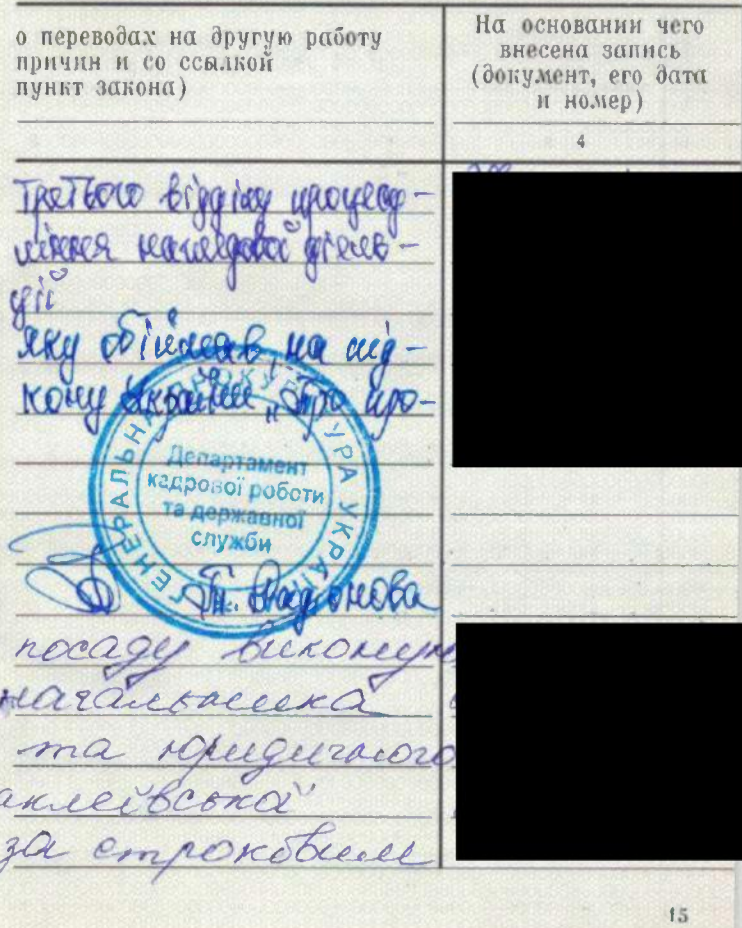 о переводах на другую работу
причин и со ссылкой
пункт закона)
На основании чего
внесена запись
(документ, его дата
и номер)
4
третього відділу процесу-
ління наглядової діяль-
ції
яку обіймав, на під-
кону України „Про про-
ГЕНЕРАЛЬНА ПРОКУРАТУРА УКРАЇНИ
Департамент
кадрової роботи
та державної
служби
посаду виконую
начальника
та юридичного
аклеївської
за строковим
15